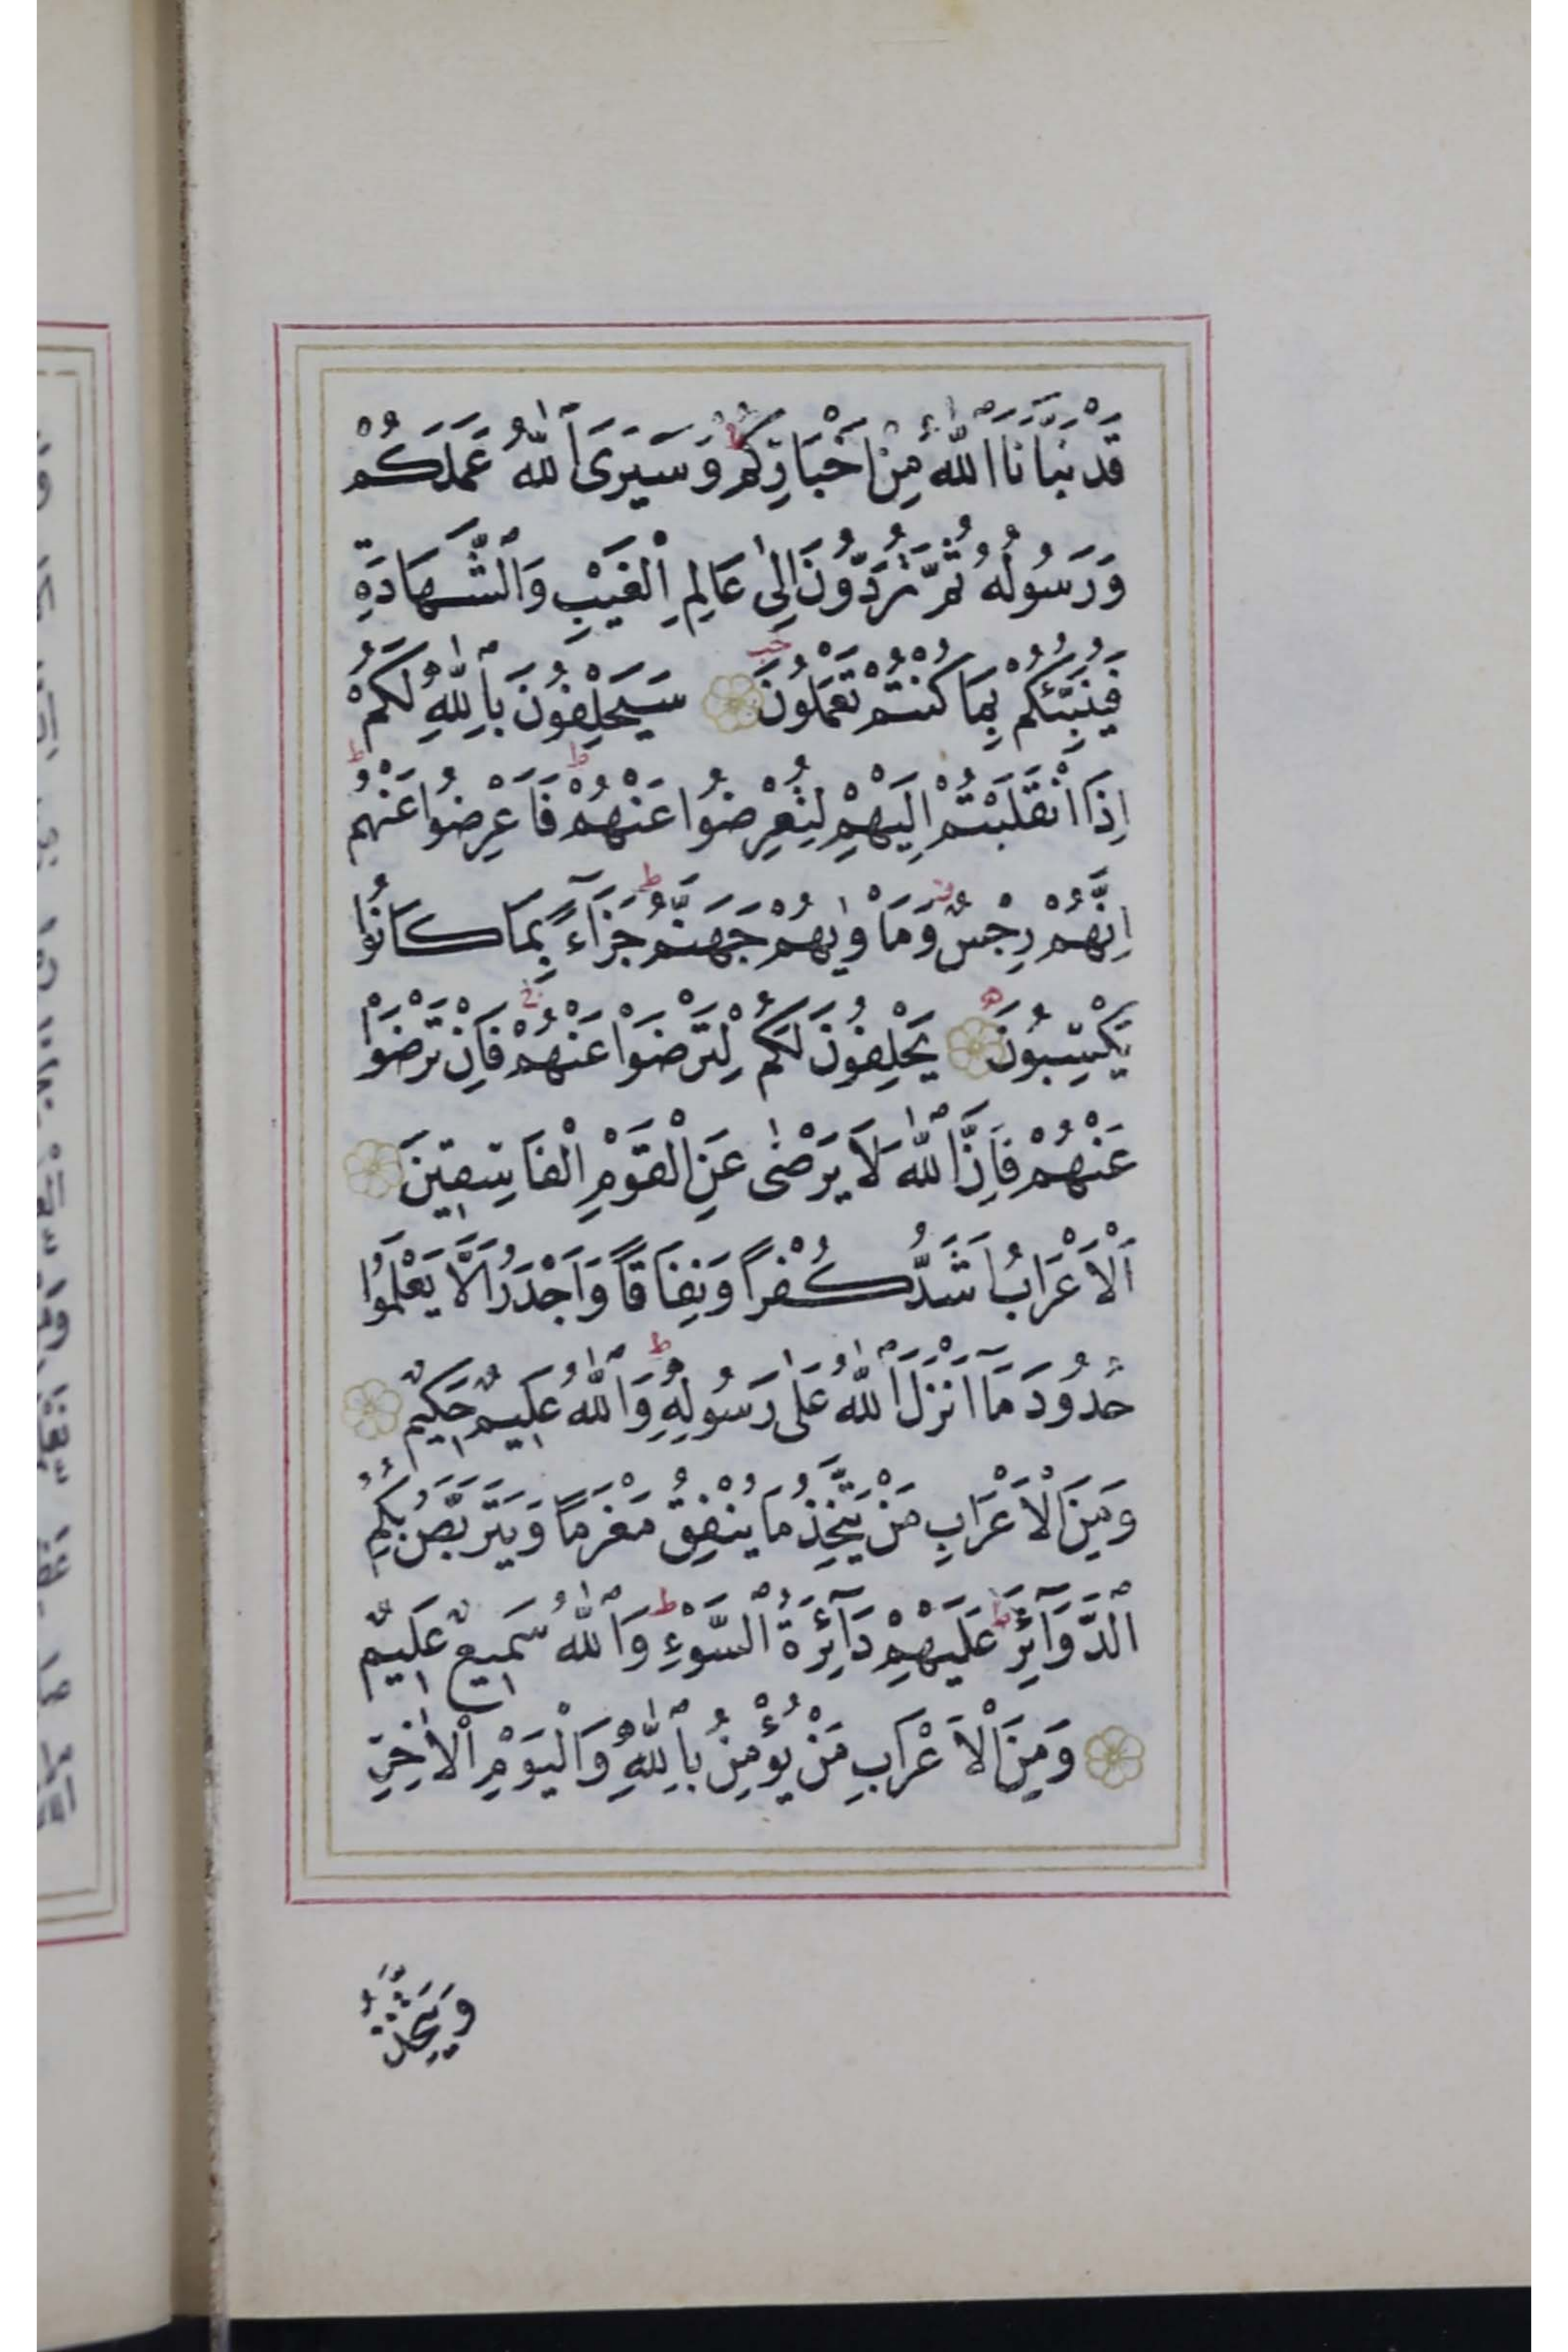 قَدْ نَبَّاَنَا اللّٰهُ مِنْ اَخْبَارِكُمْ وَسَيَرَى اللّٰهُ عَمَلَكُمْ
وَرَسُولُهُ ثُمَّ تُرَدُّونَ اِلٰى عَالِمِ الْغَيْبِ وَالشَّهَادَةِ
فَيُنَبِّئُكُمْ بِمَا كُنْتُمْ تَعْمَلُونَ سَيَحْلِفُونَ بِاللّٰهِ لَكُمْ
اِذَا انْقَلَبْتُمْ اِلَيْهِمْ لِتُعْرِضُوا عَنْهُمْ فَاَعْرِضُوا عَنْهُمْ
اِنَّهُمْ رِجْسٌ وَمَأْوٰيهُمْ جَهَنَّمُ جَزَٓاءً بِمَا كَانُوا
يَكْسِبُونَ يَحْلِفُونَ لَكُمْ لِتَرْضَوْا عَنْهُمْ فَاِنْ تَرْضَوْا
عَنْهُمْ فَاِنَّ اللّٰهَ لَا يَرْضٰى عَنِ الْقَوْمِ الْفَاسِقِينَ
اَلْاَعْرَابُ اَشَدُّ كُفْرًا وَنِفَاقًا وَاَجْدَرُ اَلَّا يَعْلَمُوا
حُدُودَ مَٓا اَنْزَلَ اللّٰهُ عَلٰى رَسُولِهِ وَاللّٰهُ عَلِيمٌ حَكِيمٌ
وَمِنَ الْاَعْرَابِ مَنْ يَتَّخِذُ مَا يُنْفِقُ مَغْرَمًا وَيَتَرَبَّصُ بِكُمُ
الدَّوَٓائِرَ عَلَيْهِمْ دَٓائِرَةُ السَّوْءِ وَاللّٰهُ سَمِيعٌ عَلِيمٌ
وَمِنَ الْاَعْرَابِ مَنْ يُؤْمِنُ بِاللّٰهِ وَالْيَوْمِ الْاٰخِرِ
وَيَتَّخِذُ